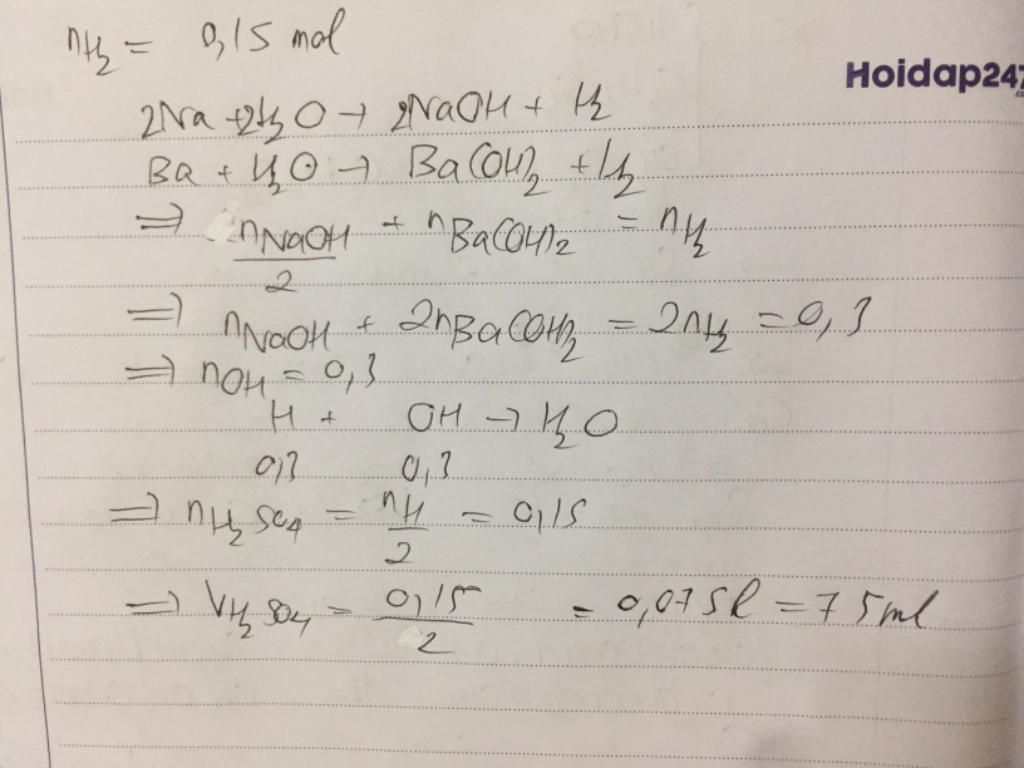 nH₂ = 0,15 mol
Hoidap247
2Na + 2H₂O → 2NaOH + H₂
Ba + H₂O → Ba(OH)₂ + H₂
⇒ nNaOH/2 + nBa(OH)₂ = nH₂
⇒ nNaOH + 2nBa(OH)₂ = 2nH₂ = 0,3
⇒ nOH = 0,3
H + OH → H₂O
0,3 0,3
⇒ nH₂SO₄ = nH/2 = 0,15
⇒ VH₂SO₄ = 0,15/2 = 0,075l = 75ml